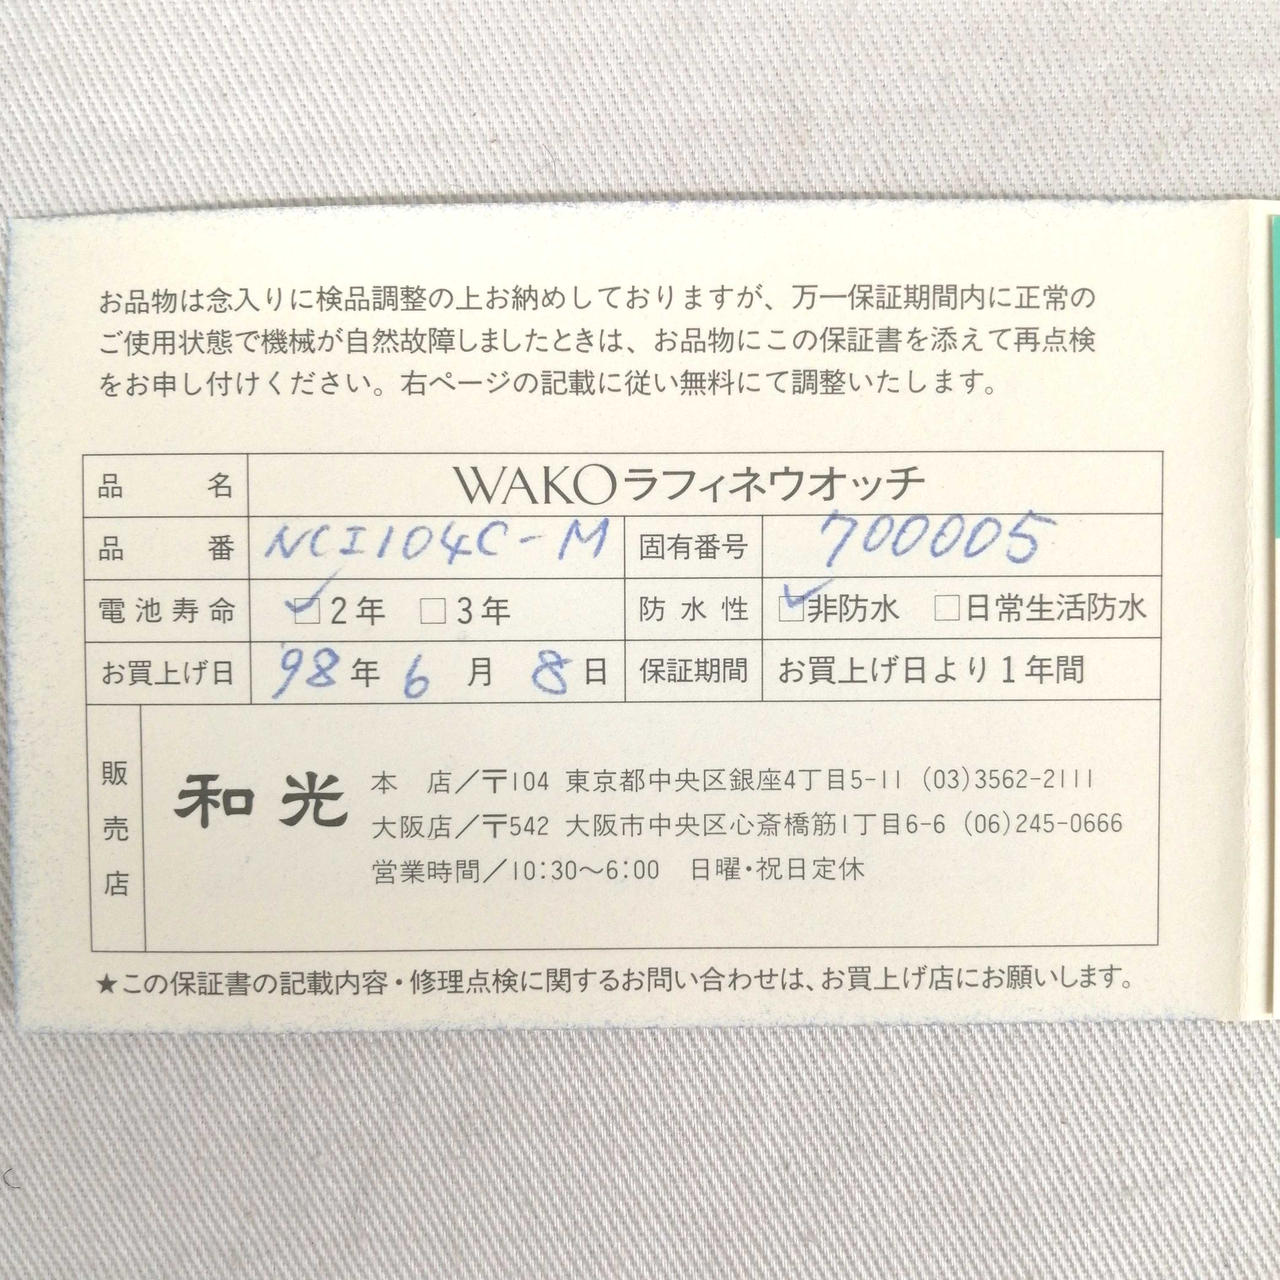 お品物は念入りに検品調整の上お納めしておりますが、万一保証期間内に正常の
ご使用状態で機械が自然故障しましたときは、お品物にこの保証書を添えて再点検
をお申し付けください。右ページの記載に従い無料にて調整いたします。
品名 WAKOラフィネウオッチ
品番 NCI104C-M 固有番号 700005
電池寿命 ☑2年 □3年 防水性 ☑非防水 □日常生活防水
お買上げ日 98年 6月 8日 保証期間 お買上げ日より1年間
販売店 和光 本店／〒104 東京都中央区銀座4丁目5-11 (03)3562-2111
大阪店／〒542 大阪市中央区心斎橋筋1丁目6-6 (06)245-0666
営業時間／10:30～6:00 日曜・祝日定休
★この保証書の記載内容・修理点検に関するお問い合わせは、お買上げ店にお願いします。